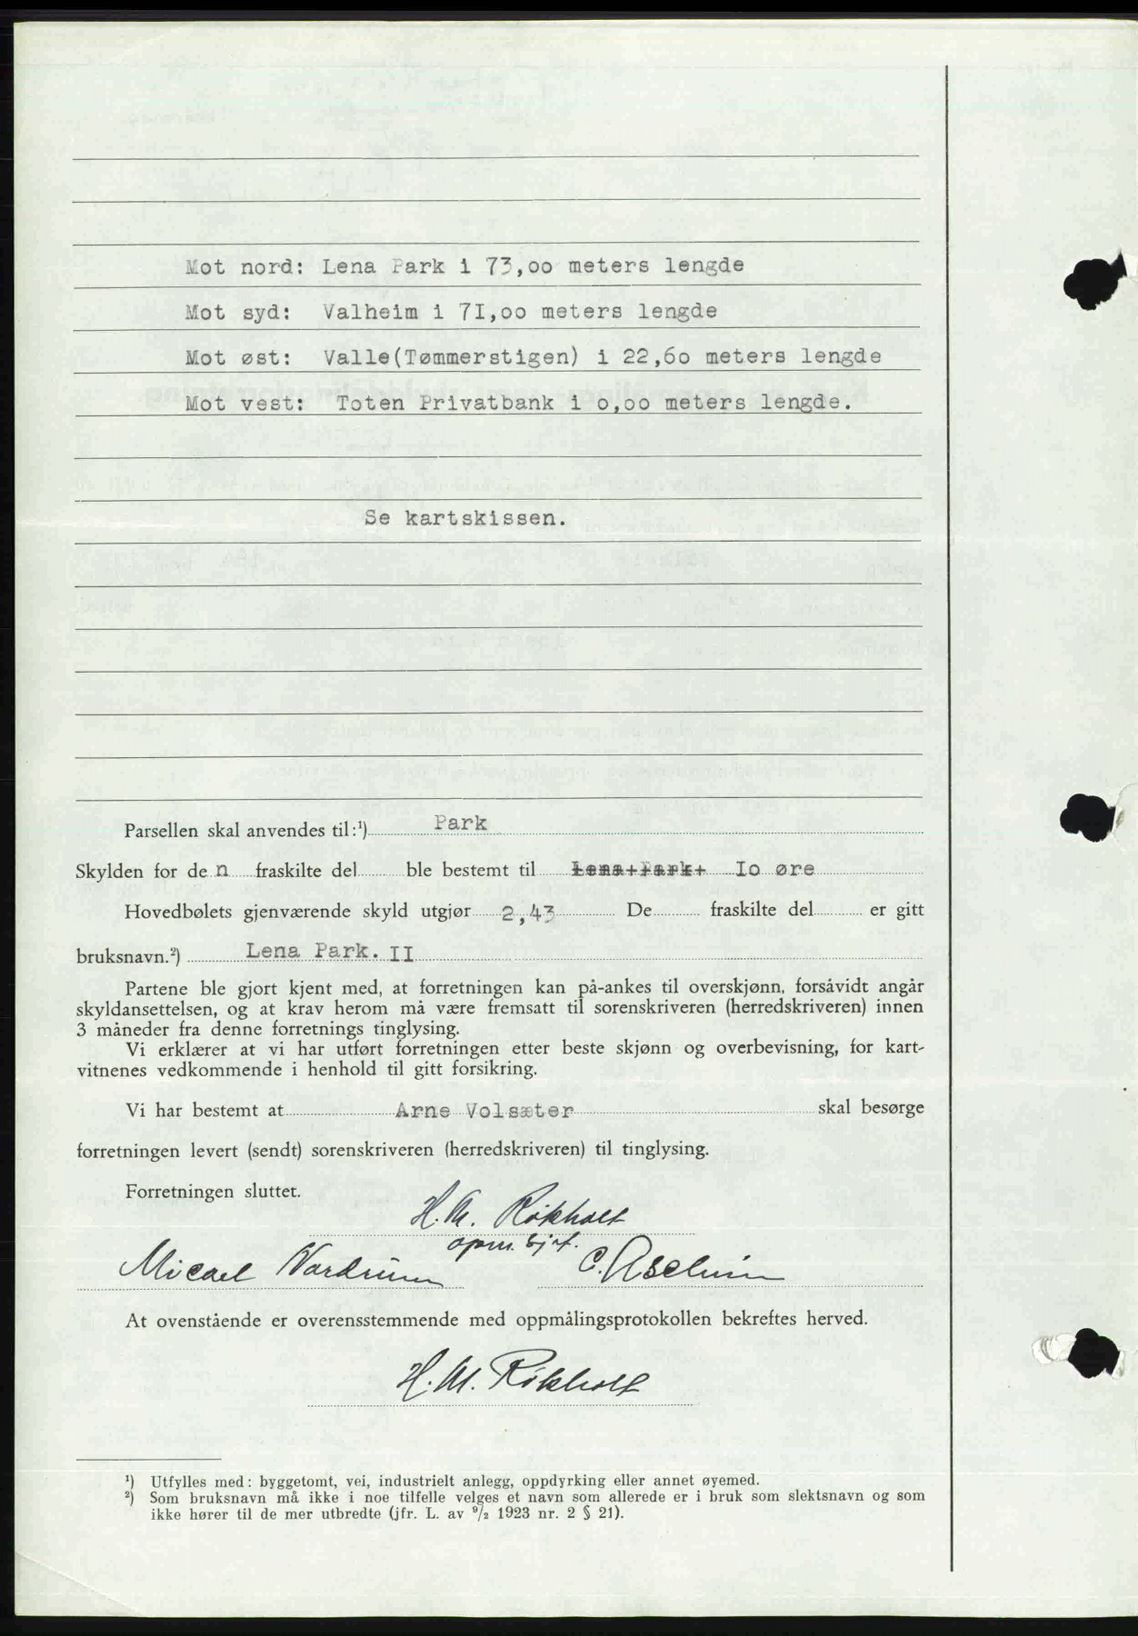 Mot nord: Lena Park i 73,oo meters lengde
Mot syd: Valheim i 7I,oo meters lengde
Mot øst: Valle(Tømmerstigen) i 22,6o meters lengde
Mot vest: Toten Privatbank i o,oo meters lengde.
Se kartskissen.
Parsellen skal anvendes til:¹) Park
Skylden for de n fraskilte del ble bestemt til Lena Park Io øre
Hovedbølets gjenværende skyld utgjør 2,43 De fraskilte del er gitt
bruksnavn.²) Lena Park. II
Partene ble gjort kjent med, at forretningen kan på-ankes til overskjønn, forsåvidt angår
skyldansettelsen, og at krav herom må være fremsatt til sorenskriveren (herredskriveren) innen
3 måneder fra denne forretnings tinglysing.
Vi erklærer at vi har utført forretningen etter beste skjønn og overbevisning, for kart-
vitnenes vedkommende i henhold til gitt forsikring.
Vi har bestemt at Arne Volsæter skal besørge
forretningen levert (sendt) sorenskriveren (herredskriveren) til tinglysing.
Forretningen sluttet.
H. M. Røkholt
opm. bjst.
Micael Nordrum C. Aschim
At ovenstående er overensstemmende med oppmålingsprotokollen bekreftes herved.
H. M. Røkholt
¹) Utfylles med: byggetomt, vei, industrielt anlegg, oppdyrking eller annet øyemed.
²) Som bruksnavn må ikke i noe tilfelle velges et navn som allerede er i bruk som slektsnavn og som
ikke hører til de mer utbredte (jfr. L. av 9/2 1923 nr. 2 § 21).